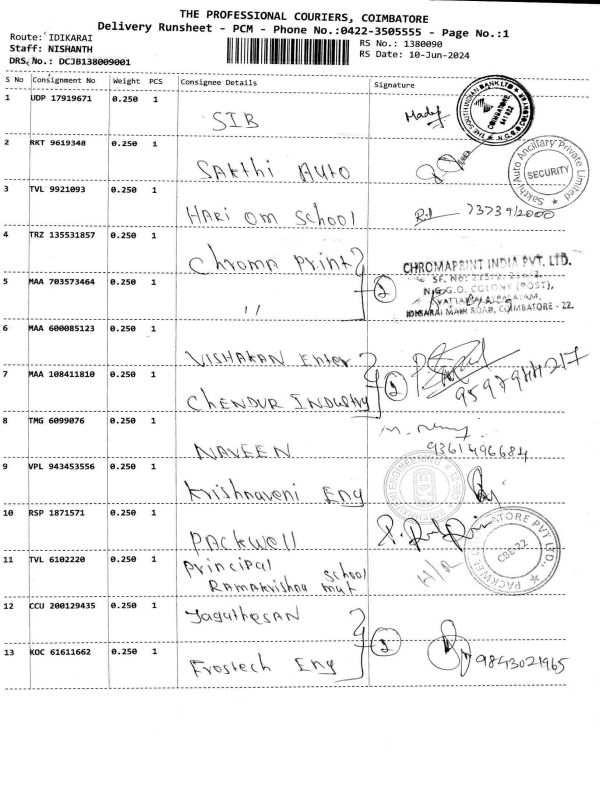 THE PROFESSIONAL COURIERS, COIMBATORE
Delivery Runsheet - PCM - Phone No.:0422-3505555 - Page No.:1
Route: IDIKARAI
RS No.: 1380090
Staff: NISHANTH
RS Date: 10-Jun-2024
DRS.No.: DCJB138009001
S No Consignment No Weight PCS Consignee Details Signature
1 UDP 17919671 0.250 1 SIB
2 RKT 9619348 0.250 1 SAKthi AUto
SECURITY
Sakthi Auto Ancillary Private Limited
3 TVL 9921093 0.250 1 HARi om School
4 TRZ 135531857 0.250 1 Chroma Print
CHROMAPRINT INDIA PVT. LTD.
N.G.G.O. COLONY (POST),
IDIGARAI MAIN ROAD, COIMBATORE - 22.
5 MAA 703573464 0.250 1 " 2
6 MAA 600085123 0.250 1 VISHAKAN Enter
7 MAA 108411810 0.250 1 CHENDUR INDUStry 2
8 TMG 6099076 0.250 1 NAVEEN
9361496684
9 VPL 943453556 0.250 1 Krishnaveni Eng
10 RSP 1871571 0.250 1 PACKwell
CBE-22
11 TVL 6102220 0.250 1 Principal School
RAMAKrishna mat
12 CCU 200129435 0.250 1 JagathesAN
13 KOC 61611662 0.250 1 Frostech Eng 2
9843021965